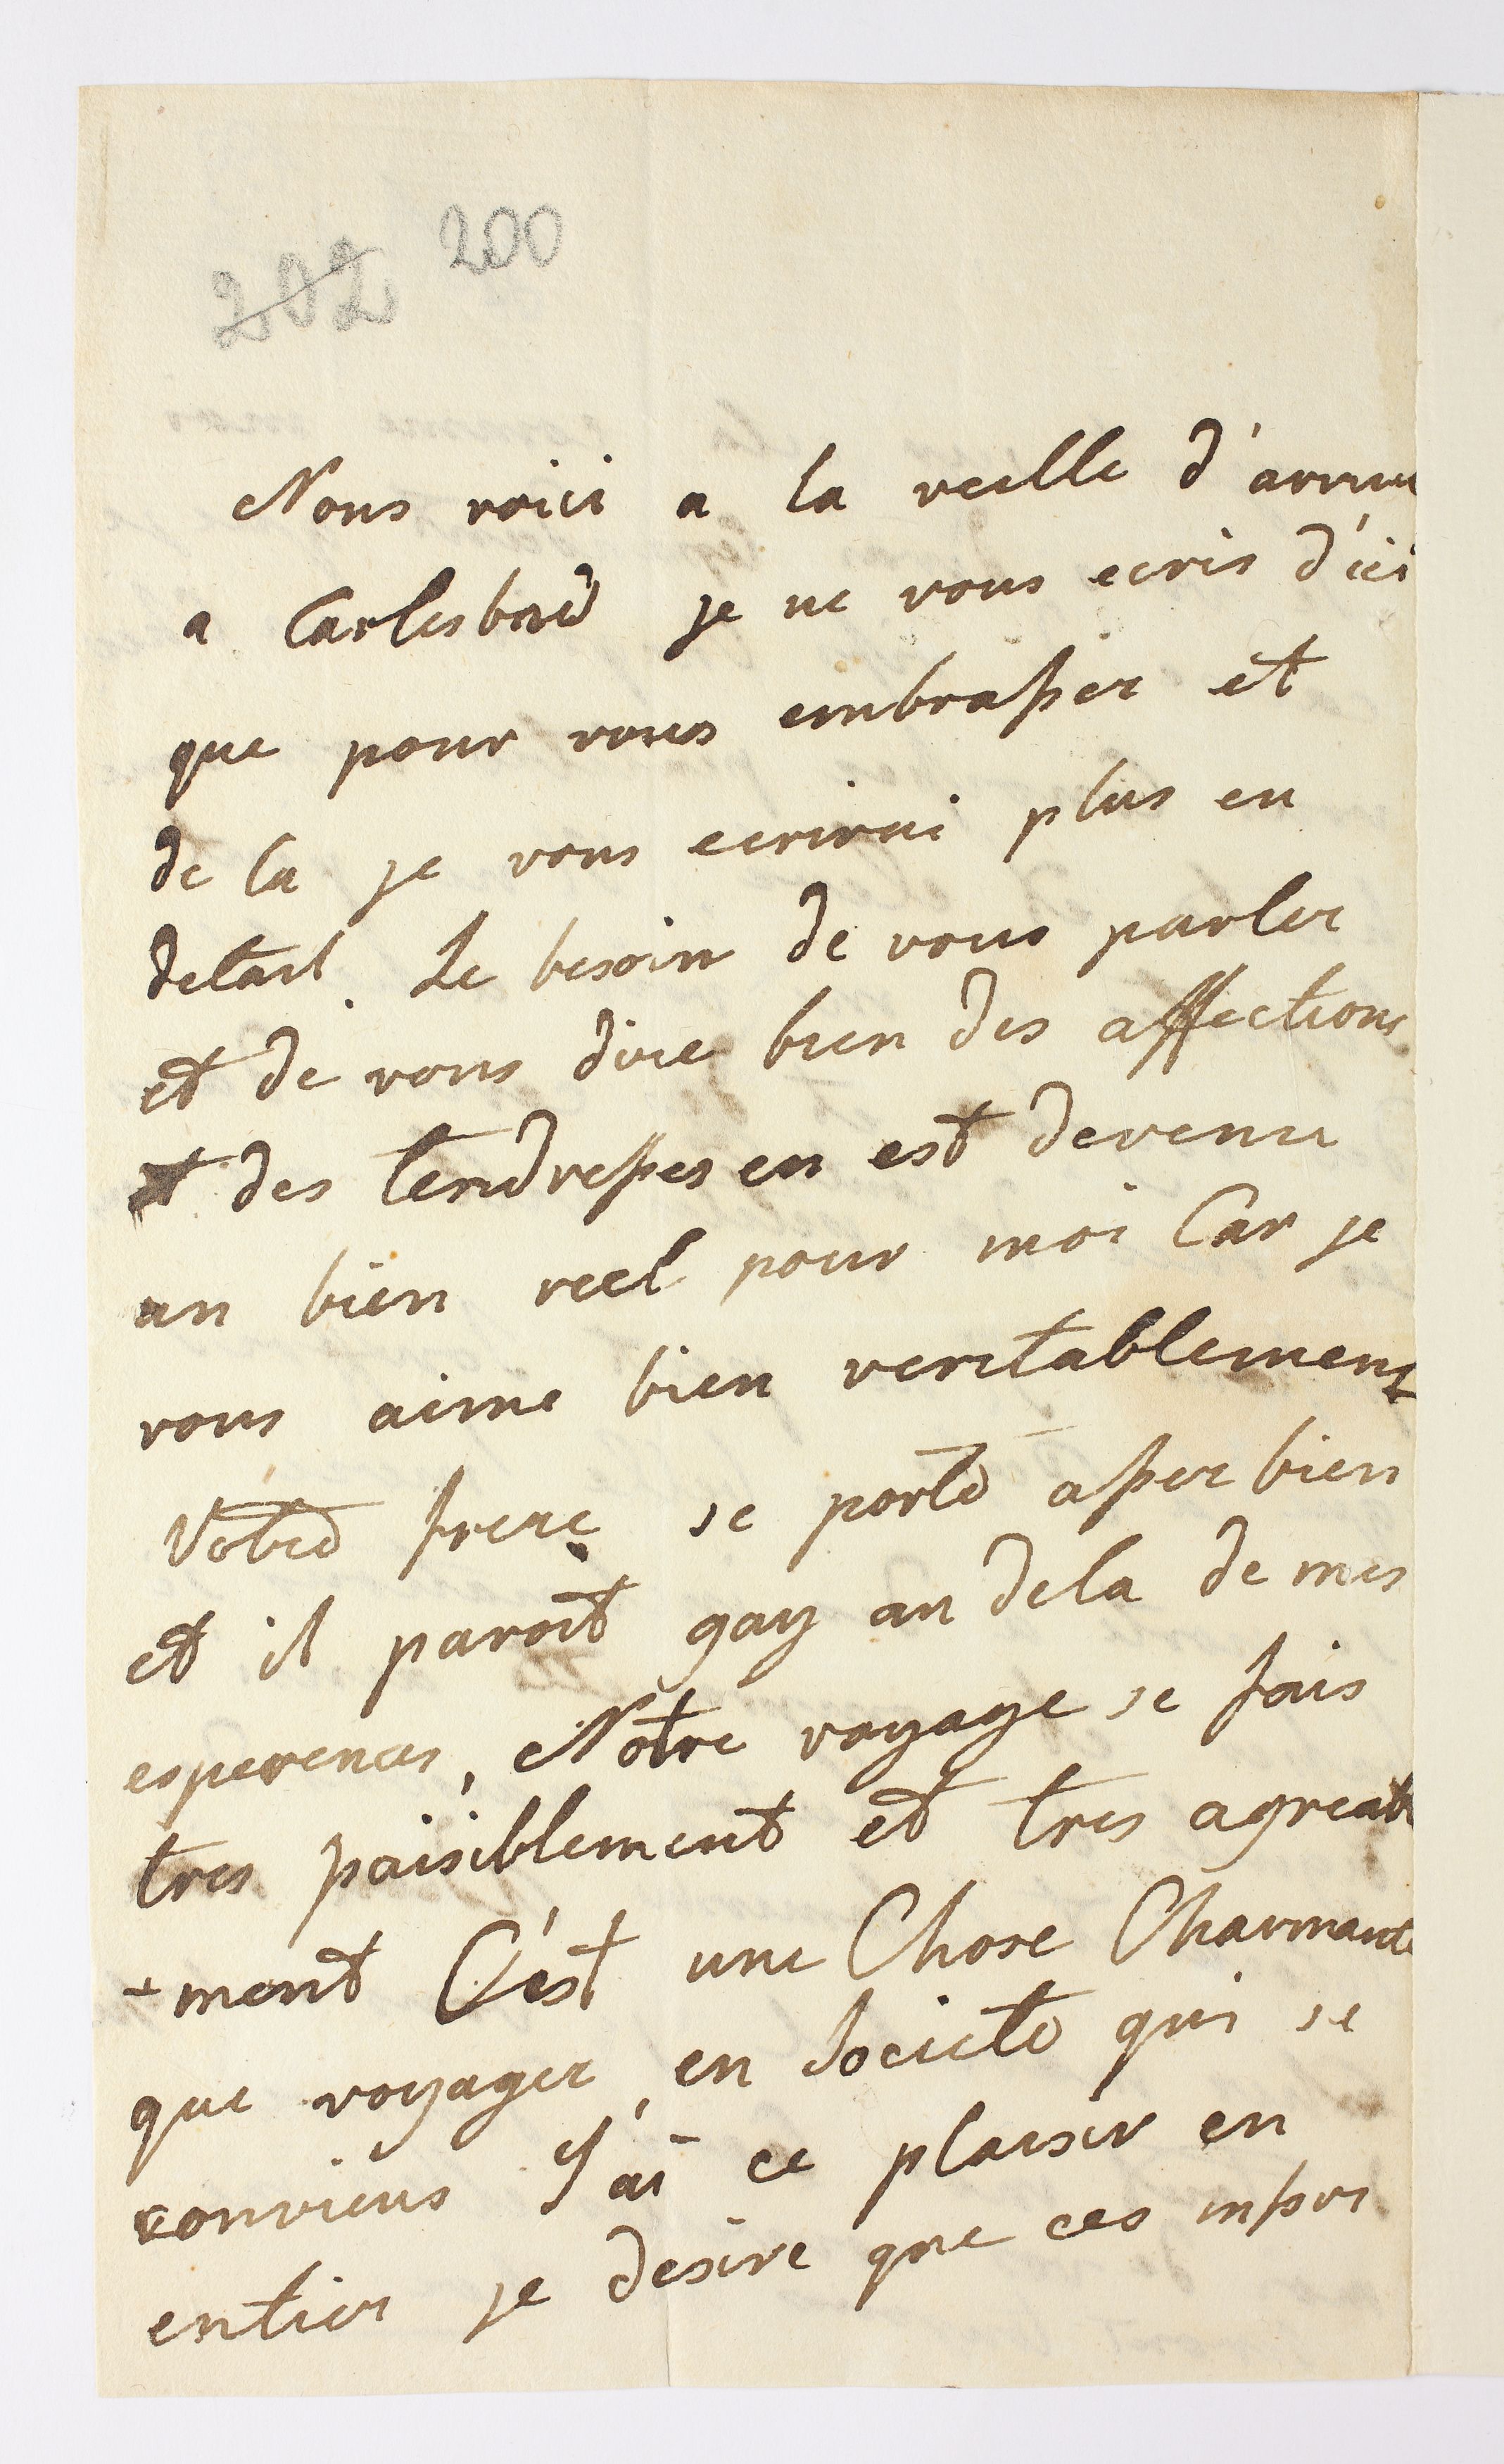 202 200
Nous voici a la veille d'arriv
a Carlesbad je ne vous ecris d'ici
que pour vous embrasser et
de la je vous ecrirai plus en
detail. Le besoin de vous parler
et de vous dire bien des affections
et des tendresses en est devenu
un bien reel pour moi Car je
vous aime bien veritablement
Votre frere se porte asser bien
et il paroit gay au dela de mes
esperences, Notre voyage se fais
tres paisiblement et tres agreab
-ment C'est une Chose Charmante
que voyager en Societe qui se
conviens J'ai ce plaisir en
entier je desire que ces